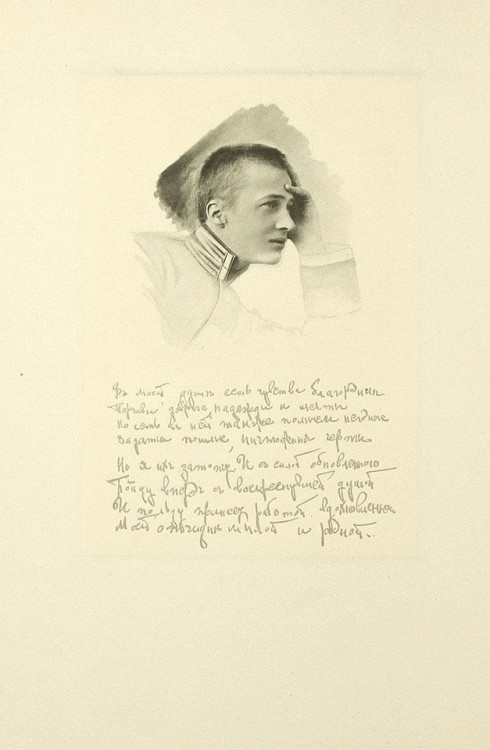 Въ моей душѣ есть чувства благородныя
Порывы добрые, надежды и мечты
Но есть въ ней также
задатки пошлые, ничтожныя черты.
Но я ихъ затопчу. И съ силой обновленною
Пойду впередъ съ воскреснувшей душой
И пользу принесу работой вдохновенною
Моей отчизнѣ милой и родной...